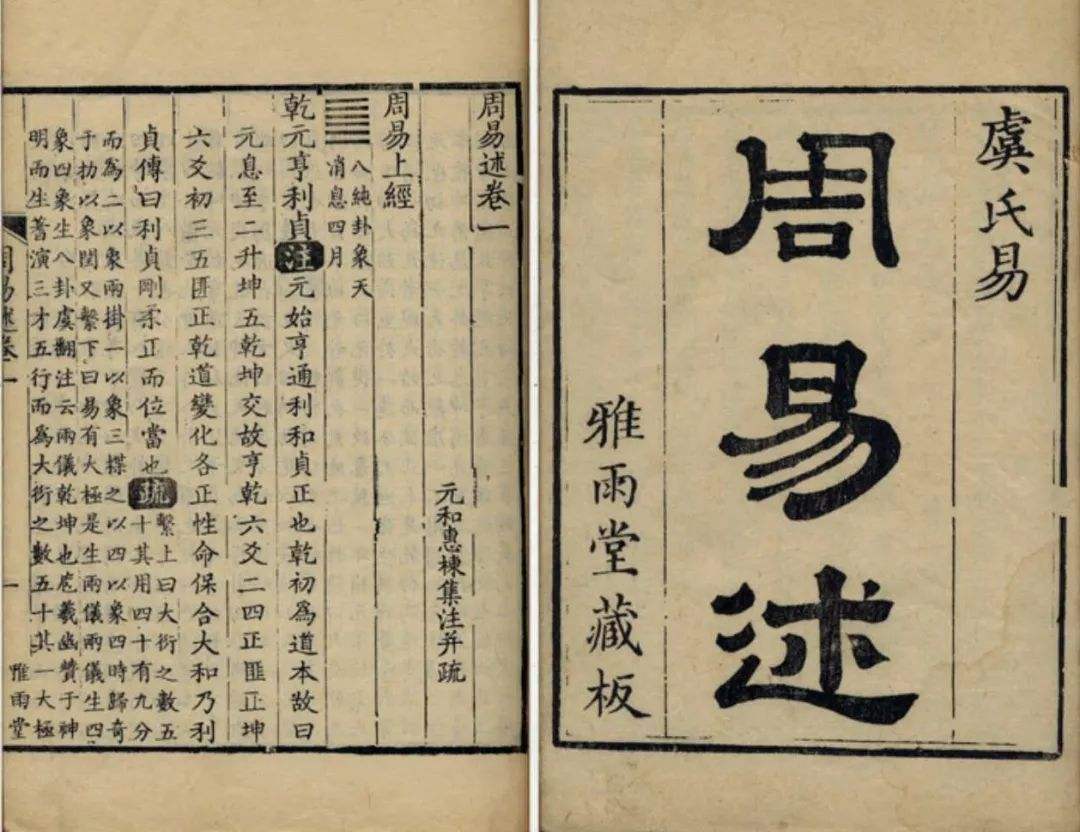 虞氏易
周易述
雅雨堂藏板
周易述卷一
元和惠棟集注并疏
周易上經
八純卦象天
消息四月
乾元亨利貞注元始亨通利和貞正也乾初爲道本故曰
元息至二升坤五乾坤交故亨乾六爻二四正匪正坤
六爻初三五匪正乾道變化各正性命保合大和乃利
貞傳曰利貞剛柔正而位當也疏繫上曰大衍之數五
十其用四十有九分
而爲二以象兩掛一以象三揲之以四以象四時歸奇
于扐以象閏又繫下曰易有大極是生兩儀兩儀生四
象四象生八卦虞翻注云兩儀乾坤也庖羲幽贊于神
明而生蓍演三才五行而爲大衍之數五十其一大極
周易述卷一
一
雅雨堂